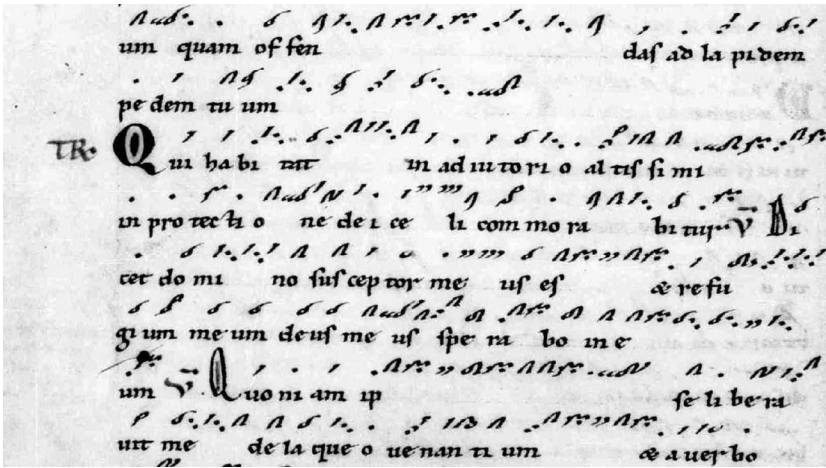 um quam offen das ad lapidem
pedem tuum
TR. Qui habitat in adiutorio altissimi
in protectione dei celi commorabitur V Di
cet domino susceptor meus es & refu
gium meum deus meus sperabo in e
um V Quoniam ipse libera
uit me de laqueo uenantium & a uerbo